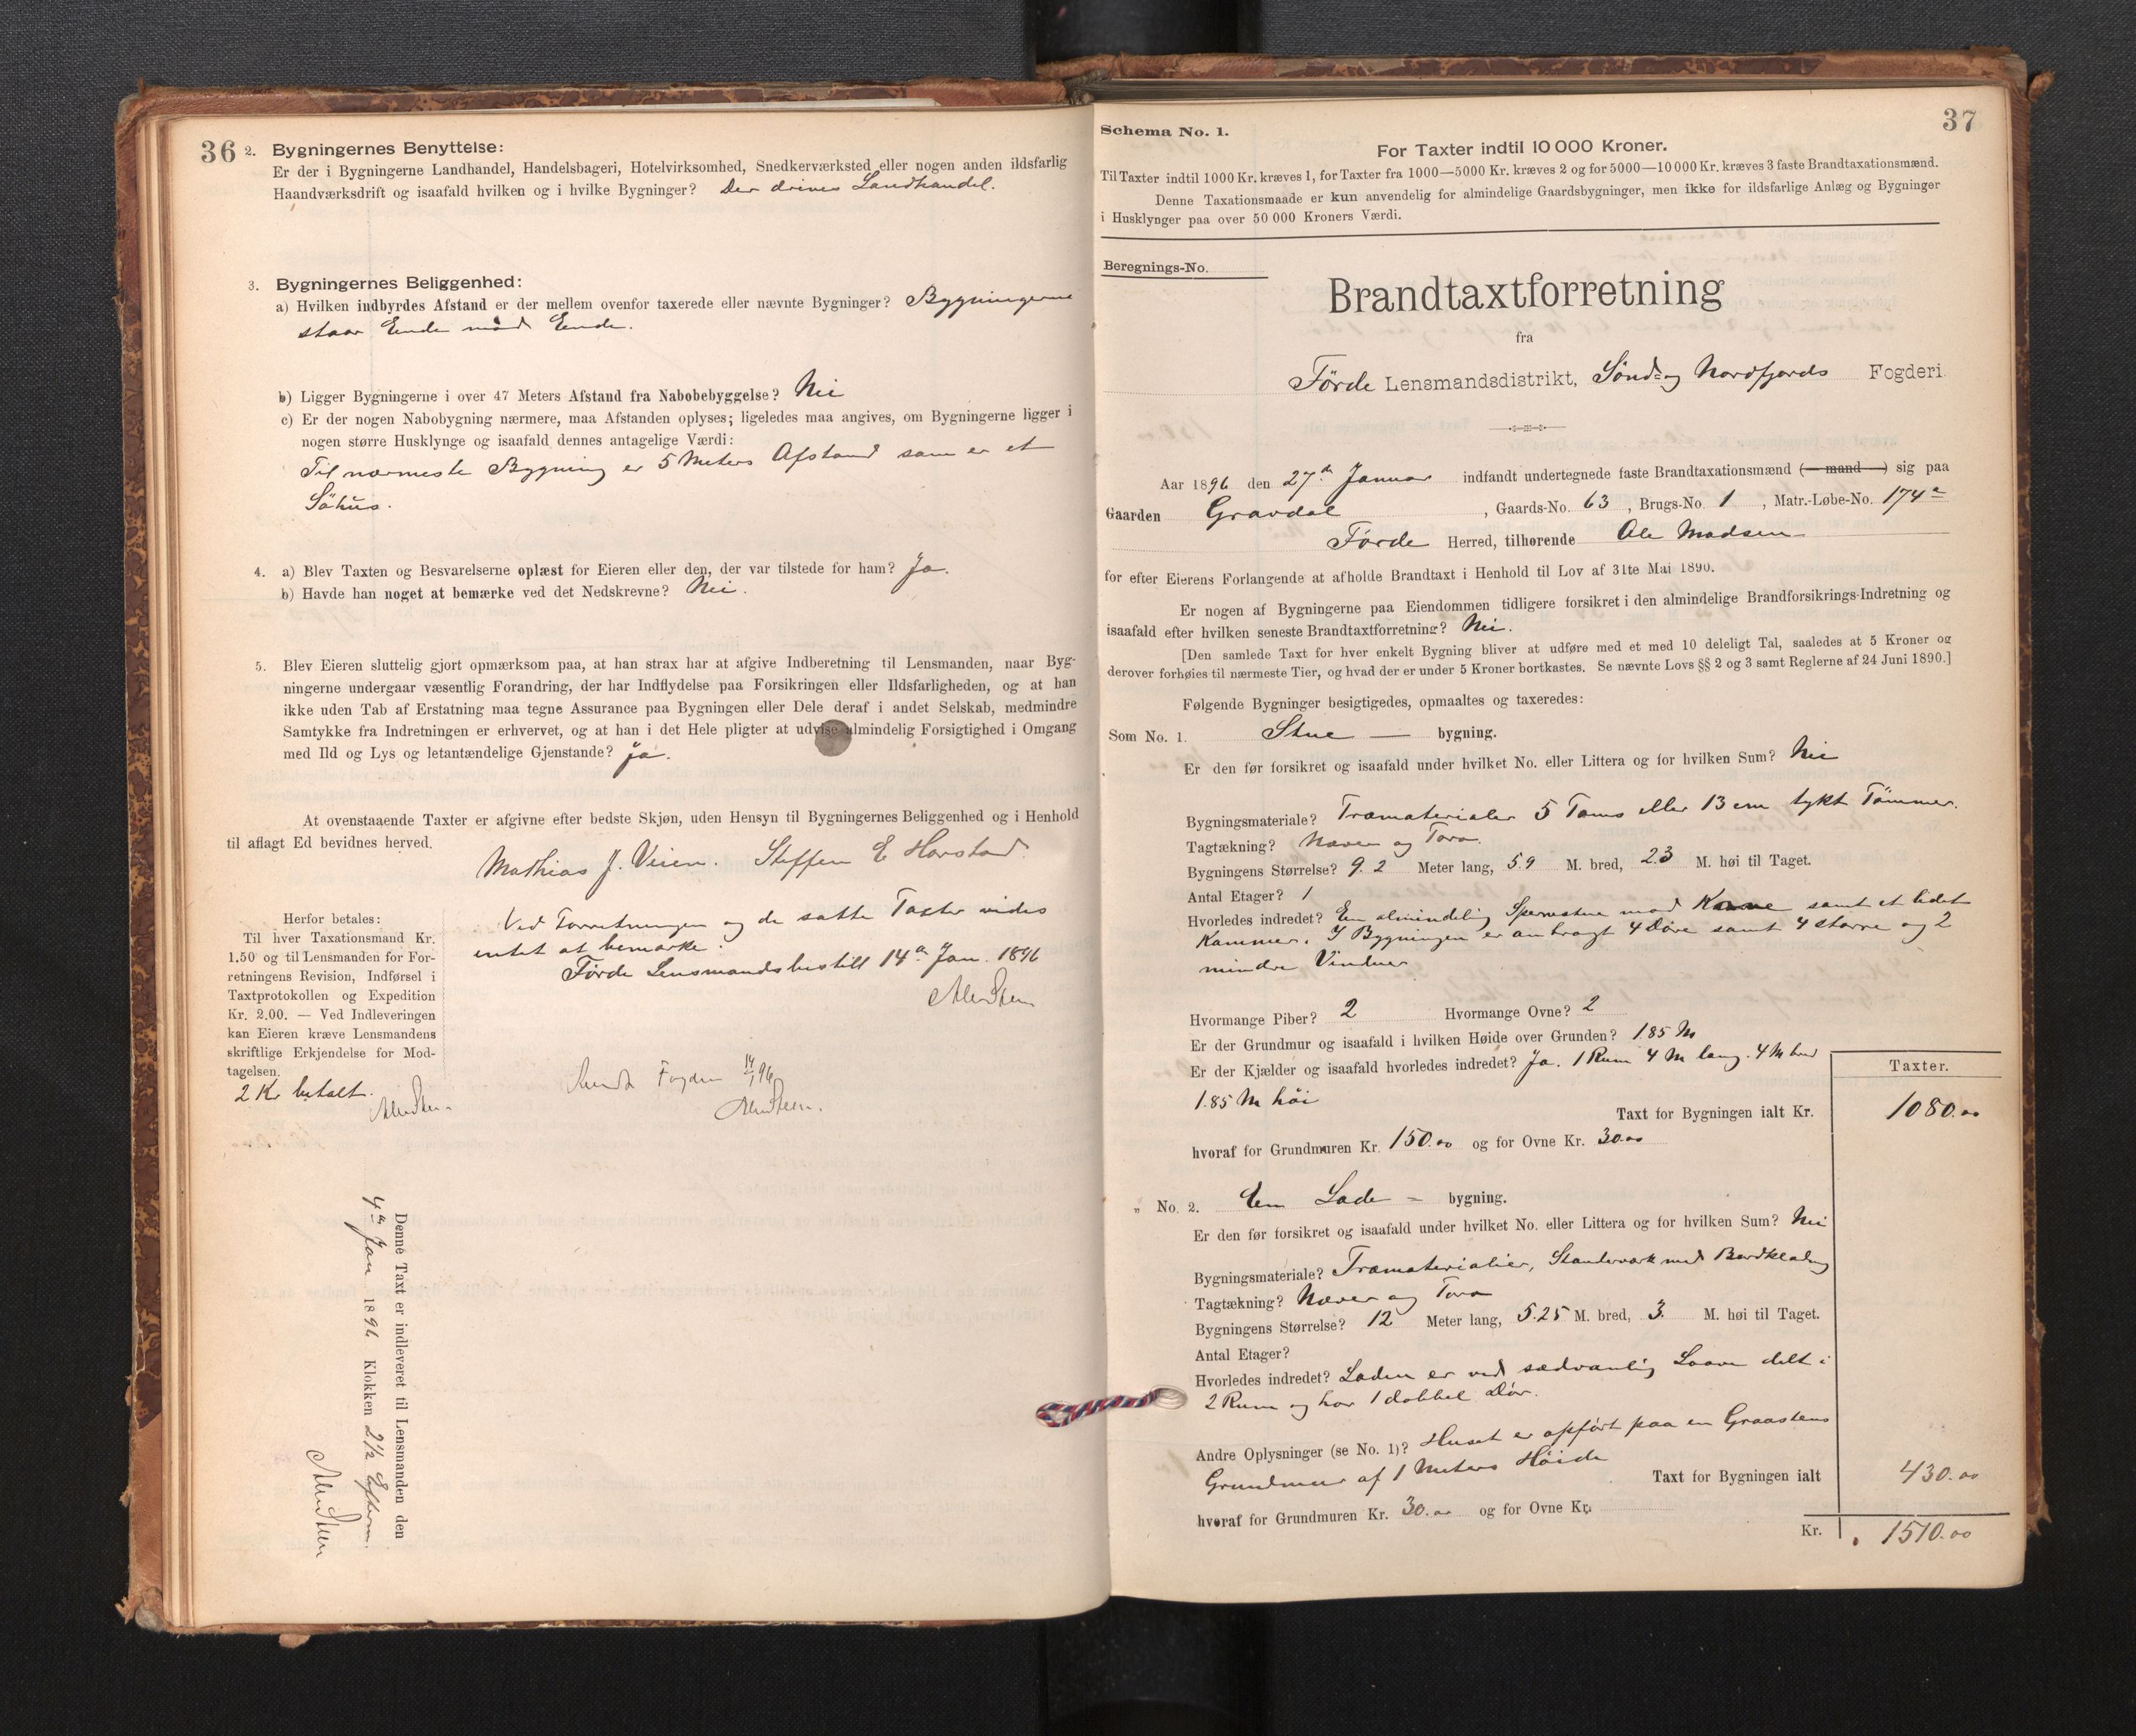 36
2. Bygningernes Benyttelse:
Er der i Bygningerne Landhandel, Handelsbageri, Hotelvirksomhed, Snedkerværksted eller nogen anden ildsfarlig
Haandværksdrift og isaafald hvilken og i hvilke Bygninger? Der drives Landhandel.
3. Bygningernes Beliggenhed:
a) Hvilken indbyrdes Afstand er der mellem ovenfor taxerede eller nævnte Bygninger? Bygningerne
staar Ende mod Ende.
b) Ligger Bygningerne i over 47 Meters Afstand fra Nabobebyggelse? Nei
c) Er der nogen Nabobygning nærmere, maa Afstanden oplyses; ligeledes maa angives, om Bygningerne ligger i
nogen større Husklynge og isaafald dennes antagelige Værdi:
Til nærmeste Bygning er 5 Meters Afstand som er et
Söhus.
4. a) Blev Taxten og Besvarelserne oplæst for Eieren eller den, der var tilstede for ham? Ja.
b) Havde han noget at bemærke ved det Nedskrevne? Nei.
5. Blev Eieren sluttelig gjort opmærksom paa, at han strax har at afgive Indberetning til Lensmanden, naar Byg-
ningerne undergaar væsentlig Forandring, der har Indflydelse paa Forsikringen eller Ildsfarligheden, og at han
ikke uden Tab af Erstatning maa tegne Assurance paa Bygningen eller Dele deraf i andet Selskab, medmindre
Samtykke fra Indretningen er erhvervet, og at han i det Hele pligter at udvise almindelig Forsigtighed i Omgang
med Ild og Lys og letantændelige Gjenstande? Ja.
At ovenstaaende Taxter er afgivne efter bedste Skjøn, uden Hensyn til Bygningernes Beliggenhed og i Henhold
til aflagt Ed bevidnes herved.
Mathias J. Veien. Steffen E Horstad.
Ved Forretningen og de satte Taxter vides
intet at bemærke.
Førde Lensmandsbestill 14de Jan. 1896
Herfor betales:
Til hver Taxationsmand Kr.
1.50 og til Lensmanden for For-
retningens Revision, Indførsel i
Taxtprotokollen og Expedition
Kr. 2.00. — Ved Indleveringen
kan Eieren kræve Lensmandens
skriftlige Erkjendelse for Mod-
tagelsen.
2 Kr betalt.
Sendt Fogden 14/1 96
Denne Taxt er indleveret til Lensmanden den
4de Jan 1896 Klokken 2½ Efterm.
37
Schema No. 1.
For Taxter indtil 10 000 Kroner.
Til Taxter indtil 1000 Kr. kræves 1, for Taxter fra 1000—5000 Kr. kræves 2 og for 5000—10 000 Kr. kræves 3 faste Brandtaxationsmænd.
Denne Taxationsmaade er kun anvendelig for almindelige Gaardsbygninger, men ikke for ildsfarlige Anlæg og Bygninger
i Husklynger paa over 50 000 Kroners Værdi.
Beregnings-No.
Brandtaxtforretning
fra
Førde Lensmandsdistrikt, Sönd- og Nordfjords Fogderi
Aar 1896 den 27de Januar indfandt undertegnede faste Brandtaxationsmænd (—mand—) sig paa
Gaarden Gravdal, Gaards-No. 63, Brugs-No. 1, Matr.-Løbe-No. 174a
Førde Herred, tilhørende Ole Madsen
for efter Eierens Forlangende at afholde Brandtaxt i Henhold til Lov af 31te Mai 1890.
Er nogen af Bygningerne paa Eiendommen tidligere forsikret i den almindelige Brandforsikrings-Indretning og
isaafald efter hvilken seneste Brandtaxtforretning? Nei.
[Den samlede Taxt for hver enkelt Bygning bliver at udføre med et med 10 deleligt Tal, saaledes at 5 Kroner og
derover forhøies til nærmeste Tier, og hvad der er under 5 Kroner bortkastes. Se nævnte Lovs §§ 2 og 3 samt Reglerne af 24 Juni 1890.]
Følgende Bygninger besigtigedes, opmaaltes og taxeredes:
Som No. 1. Stue — bygning.
Er den før forsikret og isaafald under hvilket No. eller Littera og for hvilken Sum? Nei
Bygningsmateriale? Træmaterialer 5 Toms eller 13 cm tykt Tömmer.
Tagtækning? Næver og Torv.
Bygningens Størrelse? 9.2 Meter lang, 5.9 M. bred, 2.3 M. høi til Taget.
Antal Etager? 1
Hvorledes indredet? En almindelig Sperrestue med Kove samt et lidet
Kammer. I Bygningen er anbragt 4 Döre samt 4 större og 2
mindre Vinduer
Hvormange Piber? 2 Hvormange Ovne? 2
Er der Grundmur og isaafald i hvilken Høide over Grunden? 1.85 M
Er der Kjælder og isaafald hvorledes indredet? Ja. 1 Rum 4 M lang. 4 M bred
1.85 M höi
Taxter.
Taxt for Bygningen ialt Kr. 1080.00
hvoraf for Grundmuren Kr. 150.00 og for Ovne Kr. 30.00
„ No. 2. En Lade - bygning.
Er den før forsikret og isaafald under hvilket No. eller Littera og for hvilken Sum? Nei
Bygningsmateriale? Træmaterialier, Standerværk med Bordklædning
Tagtækning? Næver og Torv
Bygningens Størrelse? 12 Meter lang, 5.25 M. bred, 3. M. høi til Taget.
Antal Etager?
Hvorledes indredet? Laden er ved sædvanlig Laave delt i
2 Rum og har 1 dobbel Dör.
Andre Oplysninger (se No. 1)? Huset er opfört paa en Graastens
Grundmur af 1 Meters Höide
Taxt for Bygningen ialt 430.00
hvoraf for Grundmuren Kr. 30.00 og for Ovne Kr.
Kr. 1510.00